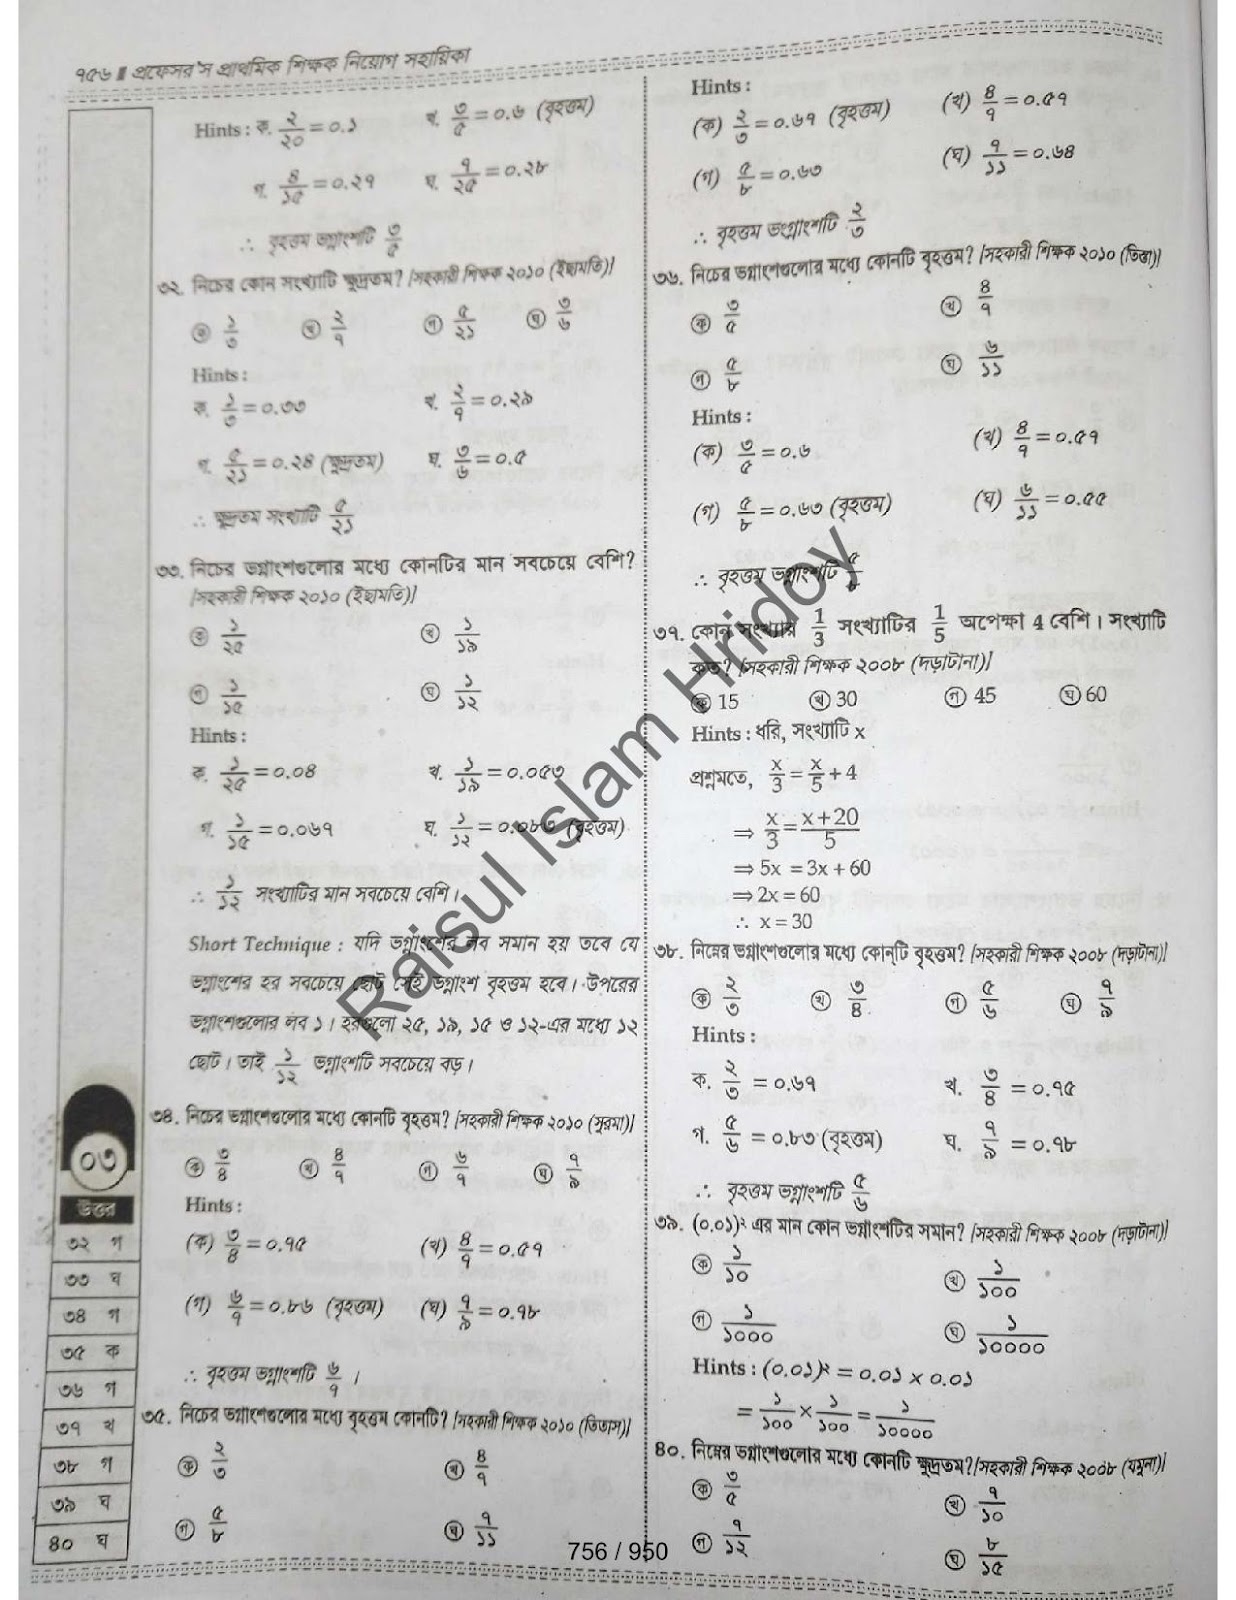 ৭৫৬ ॥ প্রফেসর'স প্রাথমিক শিক্ষক নিয়োগ সহায়িকা
Hints : ক. ২/২০ = ০.১ খ. ৩/৫ = ০.৬ (বৃহত্তম)
গ. ৪/১৫ = ০.২৭ ঘ. ৭/২৫ = ০.২৮
∴ বৃহত্তম ভগ্নাংশটি ৩/৫
৩২. নিচের কোন সংখ্যাটি ক্ষুদ্রতম? [সহকারী শিক্ষক ২০১০ (ইছামতি)]
ক ১/৩ খ ২/৭ গ ৫/২১ ঘ ৩/৬
Hints :
ক. ১/৩ = ০.৩৩ খ. ২/৭ = ০.২৯
গ. ৫/২১ = ০.২৪ (ক্ষুদ্রতম) ঘ. ৩/৬ = ০.৫
∴ ক্ষুদ্রতম সংখ্যাটি ৫/২১
৩৩. নিচের ভগ্নাংশগুলোর মধ্যে কোনটির মান সবচেয়ে বেশি?
[সহকারী শিক্ষক ২০১০ (ইছামতি)]
ক ১/২৫ খ ১/১৯
গ ১/১৫ ঘ ১/১২
Hints :
ক. ১/২৫ = ০.০৪ খ. ১/১৯ = ০.০৫৩
গ. ১/১৫ = ০.০৬৭ ঘ. ১/১২ = ০.০৮৩ (বৃহত্তম)
∴ ১/১২ সংখ্যাটির মান সবচেয়ে বেশি।
Short Technique : যদি ভগ্নাংশের লব সমান হয় তবে যে
ভগ্নাংশের হর সবচেয়ে ছোট সেই ভগ্নাংশ বৃহত্তম হবে। উপরের
ভগ্নাংশগুলোর লব ১। হরগুলো ২৫, ১৯, ১৫ ও ১২-এর মধ্যে ১২
ছোট। তাই ১/১২ ভগ্নাংশটি সবচেয়ে বড়।
৩৪. নিচের ভগ্নাংশগুলোর মধ্যে কোনটি বৃহত্তম? [সহকারী শিক্ষক ২০১০ (সুরমা)]
ক ৩/৪ খ ৪/৭ গ ৬/৭ ঘ ৭/৯
Hints :
(ক) ৩/৪ = ০.৭৫ (খ) ৪/৭ = ০.৫৭
(গ) ৬/৭ = ০.৮৬ (বৃহত্তম) (ঘ) ৭/৯ = ০.৭৮
∴ বৃহত্তম ভগ্নাংশটি ৬/৭ ।
৩৫. নিচের ভগ্নাংশগুলোর মধ্যে বৃহত্তম কোনটি? [সহকারী শিক্ষক ২০১০ (তিতাস)]
ক ২/৩ খ ৪/৭
গ ৫/৮ ঘ ৭/১১
Hints :
(ক) ২/৩ = ০.৬৭ (বৃহত্তম) (খ) ৪/৭ = ০.৫৭
(গ) ৫/৮ = ০.৬৩ (ঘ) ৭/১১ = ০.৬৪
∴ বৃহত্তম ভংগ্নাংশটি ২/৩
৩৬. নিচের ভগ্নাংশগুলোর মধ্যে কোনটি বৃহত্তম? [সহকারী শিক্ষক ২০১০ (তিস্তা)]
ক ৩/৫ খ ৪/৭
গ ৫/৮ ঘ ৬/১১
Hints :
(ক) ৩/৫ = ০.৬ (খ) ৪/৭ = ০.৫৭
(গ) ৫/৮ = ০.৬৩ (বৃহত্তম) (ঘ) ৬/১১ = ০.৫৫
∴ বৃহত্তম ভগ্নাংশটি ৫/৮
৩৭. কোন সংখ্যার 1/3 সংখ্যাটির 1/5 অপেক্ষা 4 বেশি। সংখ্যাটি
কত? [সহকারী শিক্ষক ২০০৮ (দড়াটানা)]
ক 15 খ 30 গ 45 ঘ 60
Hints : ধরি, সংখ্যাটি x
প্রশ্নমতে, x/3 = x/5 + 4
⇒ x/3 = x + 20/5
⇒ 5x = 3x + 60
⇒ 2x = 60
∴ x = 30
৩৮. নিম্নের ভগ্নাংশগুলোর মধ্যে কোন্‌টি বৃহত্তম? [সহকারী শিক্ষক ২০০৮ (দড়াটানা)]
ক ২/৩ খ ৩/৪ গ ৫/৬ ঘ ৭/৯
Hints :
ক. ২/৩ = ০.৬৭ খ. ৩/৪ = ০.৭৫
গ. ৫/৬ = ০.৮৩ (বৃহত্তম) ঘ. ৭/৯ = ০.৭৮
∴ বৃহত্তম ভগ্নাংশটি ৫/৬
৩৯. (০.০১)² এর মান কোন ভগ্নাংশটির সমান? [সহকারী শিক্ষক ২০০৮ (দড়াটানা)]
ক ১/১০ খ ১/১০০
গ ১/১০০০ ঘ ১/১০০০০
Hints : (০.০১)² = ০.০১ × ০.০১
= ১/১০০ × ১/১০০ = ১/১০০০০
৪০. নিম্নের ভগ্নাংশগুলোর মধ্যে কোনটি ক্ষুদ্রতম? [সহকারী শিক্ষক ২০০৮ (যমুনা)]
ক ৩/৫ খ ৭/১০
গ ৭/১২ ঘ ৮/১৫
০৩
উত্তর
৩২ গ
৩৩ ঘ
৩৪ গ
৩৫ ক
৩৬ গ
৩৭ খ
৩৮ গ
৩৯ ঘ
৪০ ঘ
Raisul Islam Hridoy
756 / 950